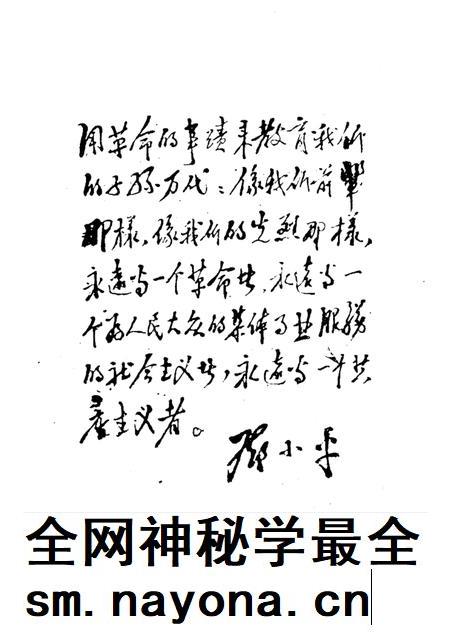 用革命的事蹟来教育我们
的子孙万代：像我们前輩
那樣，像我们的先烈那樣，
永遠当一个革命者，永遠当一
个为人民大众的集体事业服務
的社会主义者，永遠当一个共
產主义者。
邓小平
全网神秘学最全
sm.nayona.cn